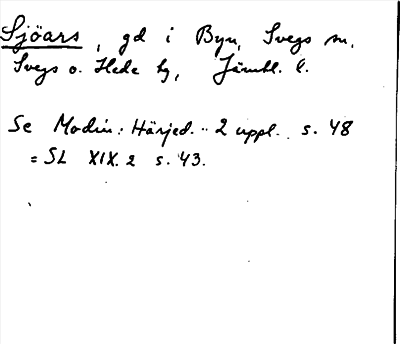 Sjöars, gd i Byn, Svegs sn.
Svegs o. Hede tg, Jämtl. l.
Se Modin: Härjed. .. 2 uppl. s. 48
= SL XIX. 2 s. 43.